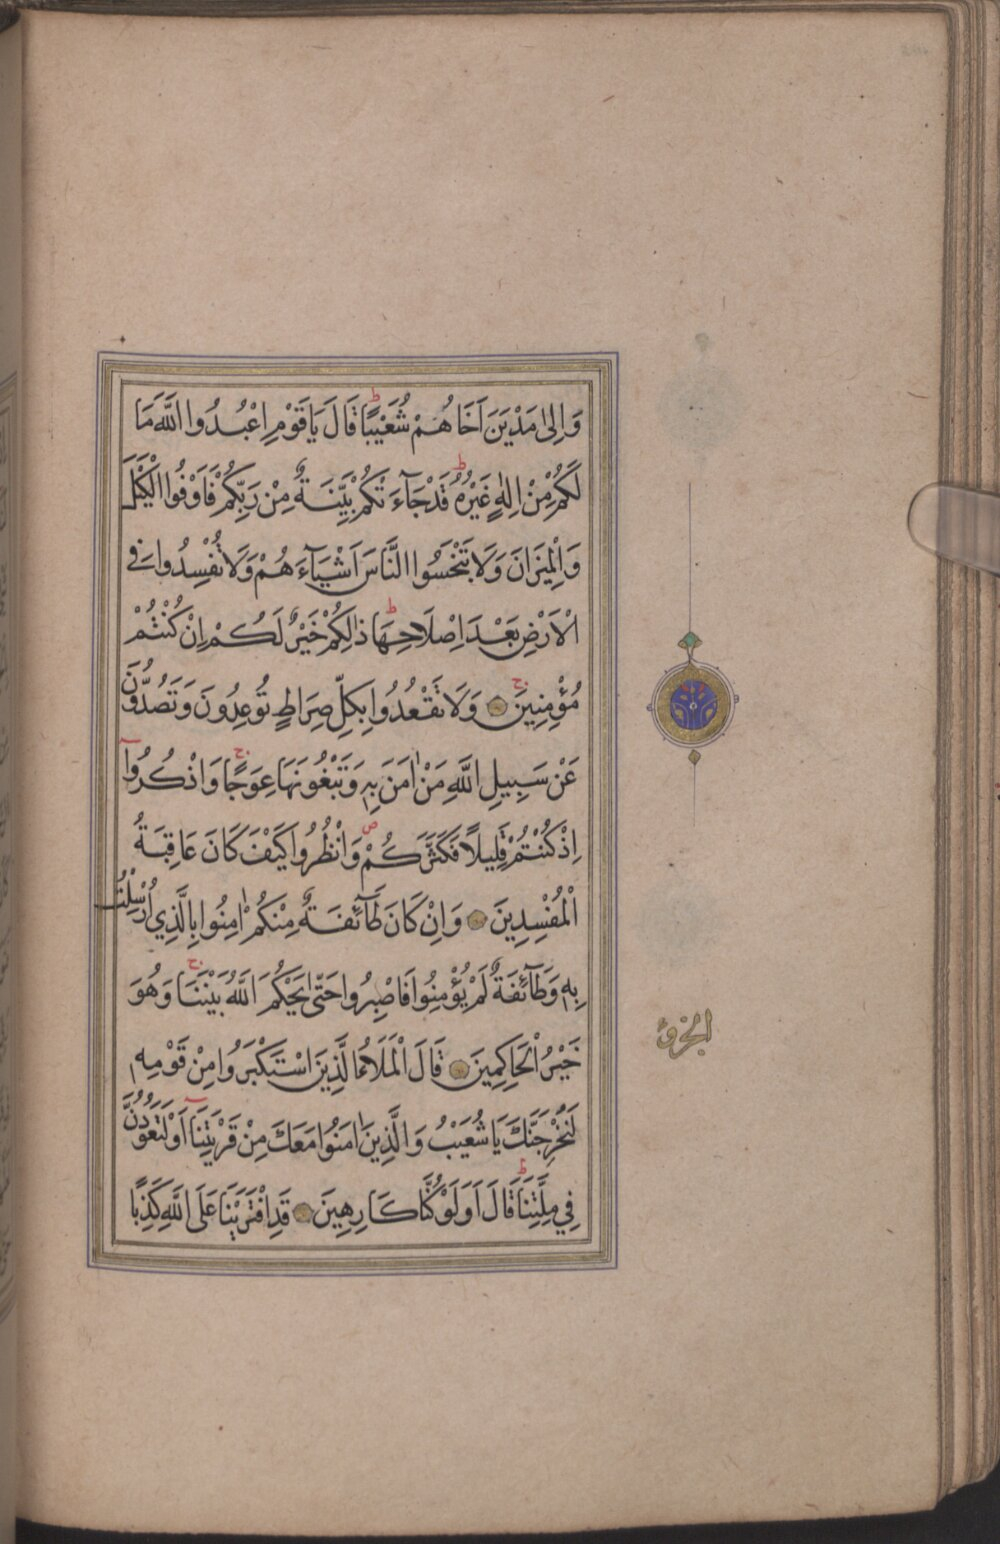 وَاِلٰى مَدْيَنَ اَخَاهُمْ شُعَيْبًاۜ قَالَ يَا قَوْمِ اعْبُدُوا اللّٰهَ مَا
لَكُمْ مِنْ اِلٰهٍ غَيْرُهُۜ قَدْ جَآءَتْكُمْ بَيِّنَةٌ مِنْ رَبِّكُمْ فَاَوْفُوا الْكَيْلَ
وَالْمِيزَانَ وَلَا تَبْخَسُوا النَّاسَ اَشْيَآءَهُمْ وَلَا تُفْسِدُوا فِي
الْاَرْضِ بَعْدَ اِصْلَاحِهَاۜ ذٰلِكُمْ خَيْرٌ لَكُمْ اِنْ كُنْتُمْ
مُؤْمِنِينَۚ وَلَا تَقْعُدُوا بِكُلِّ صِرَاطٍ تُوعِدُونَ وَتَصُدُّونَ
عَنْ سَبِيلِ اللّٰهِ مَنْ اٰمَنَ بِهِ وَتَبْغُونَهَا عِوَجًاۚ وَاذْكُرُوٓا
اِذْ كُنْتُمْ قَلِيلًا فَكَثَّرَكُمْۖ وَانْظُرُوا كَيْفَ كَانَ عَاقِبَةُ
الْمُفْسِدِينَ وَاِنْ كَانَ طَآئِفَةٌ مِنْكُمْ اٰمَنُوا بِالَّذِي اُرْسِلْتُ
بِهِ وَطَآئِفَةٌ لَمْ يُؤْمِنُوا فَاصْبِرُوا حَتّٰى يَحْكُمَ اللّٰهُ بَيْنَنَاۚ وَهُوَ
خَيْرُ الْحَاكِمِينَ قَالَ الْمَلَاُ الَّذِينَ اسْتَكْبَرُوا مِنْ قَوْمِهِ
لَنُخْرِجَنَّكَ يَا شُعَيْبُ وَالَّذِينَ اٰمَنُوا مَعَكَ مِنْ قَرْيَتِنَآ اَوْ لَتَعُودُنَّ
فِي مِلَّتِنَاۜ قَالَ اَوَلَوْ كُنَّا كَارِهِينَ قَدِ افْتَرَيْنَا عَلَى اللّٰهِ كَذِبًا
الجزؤ